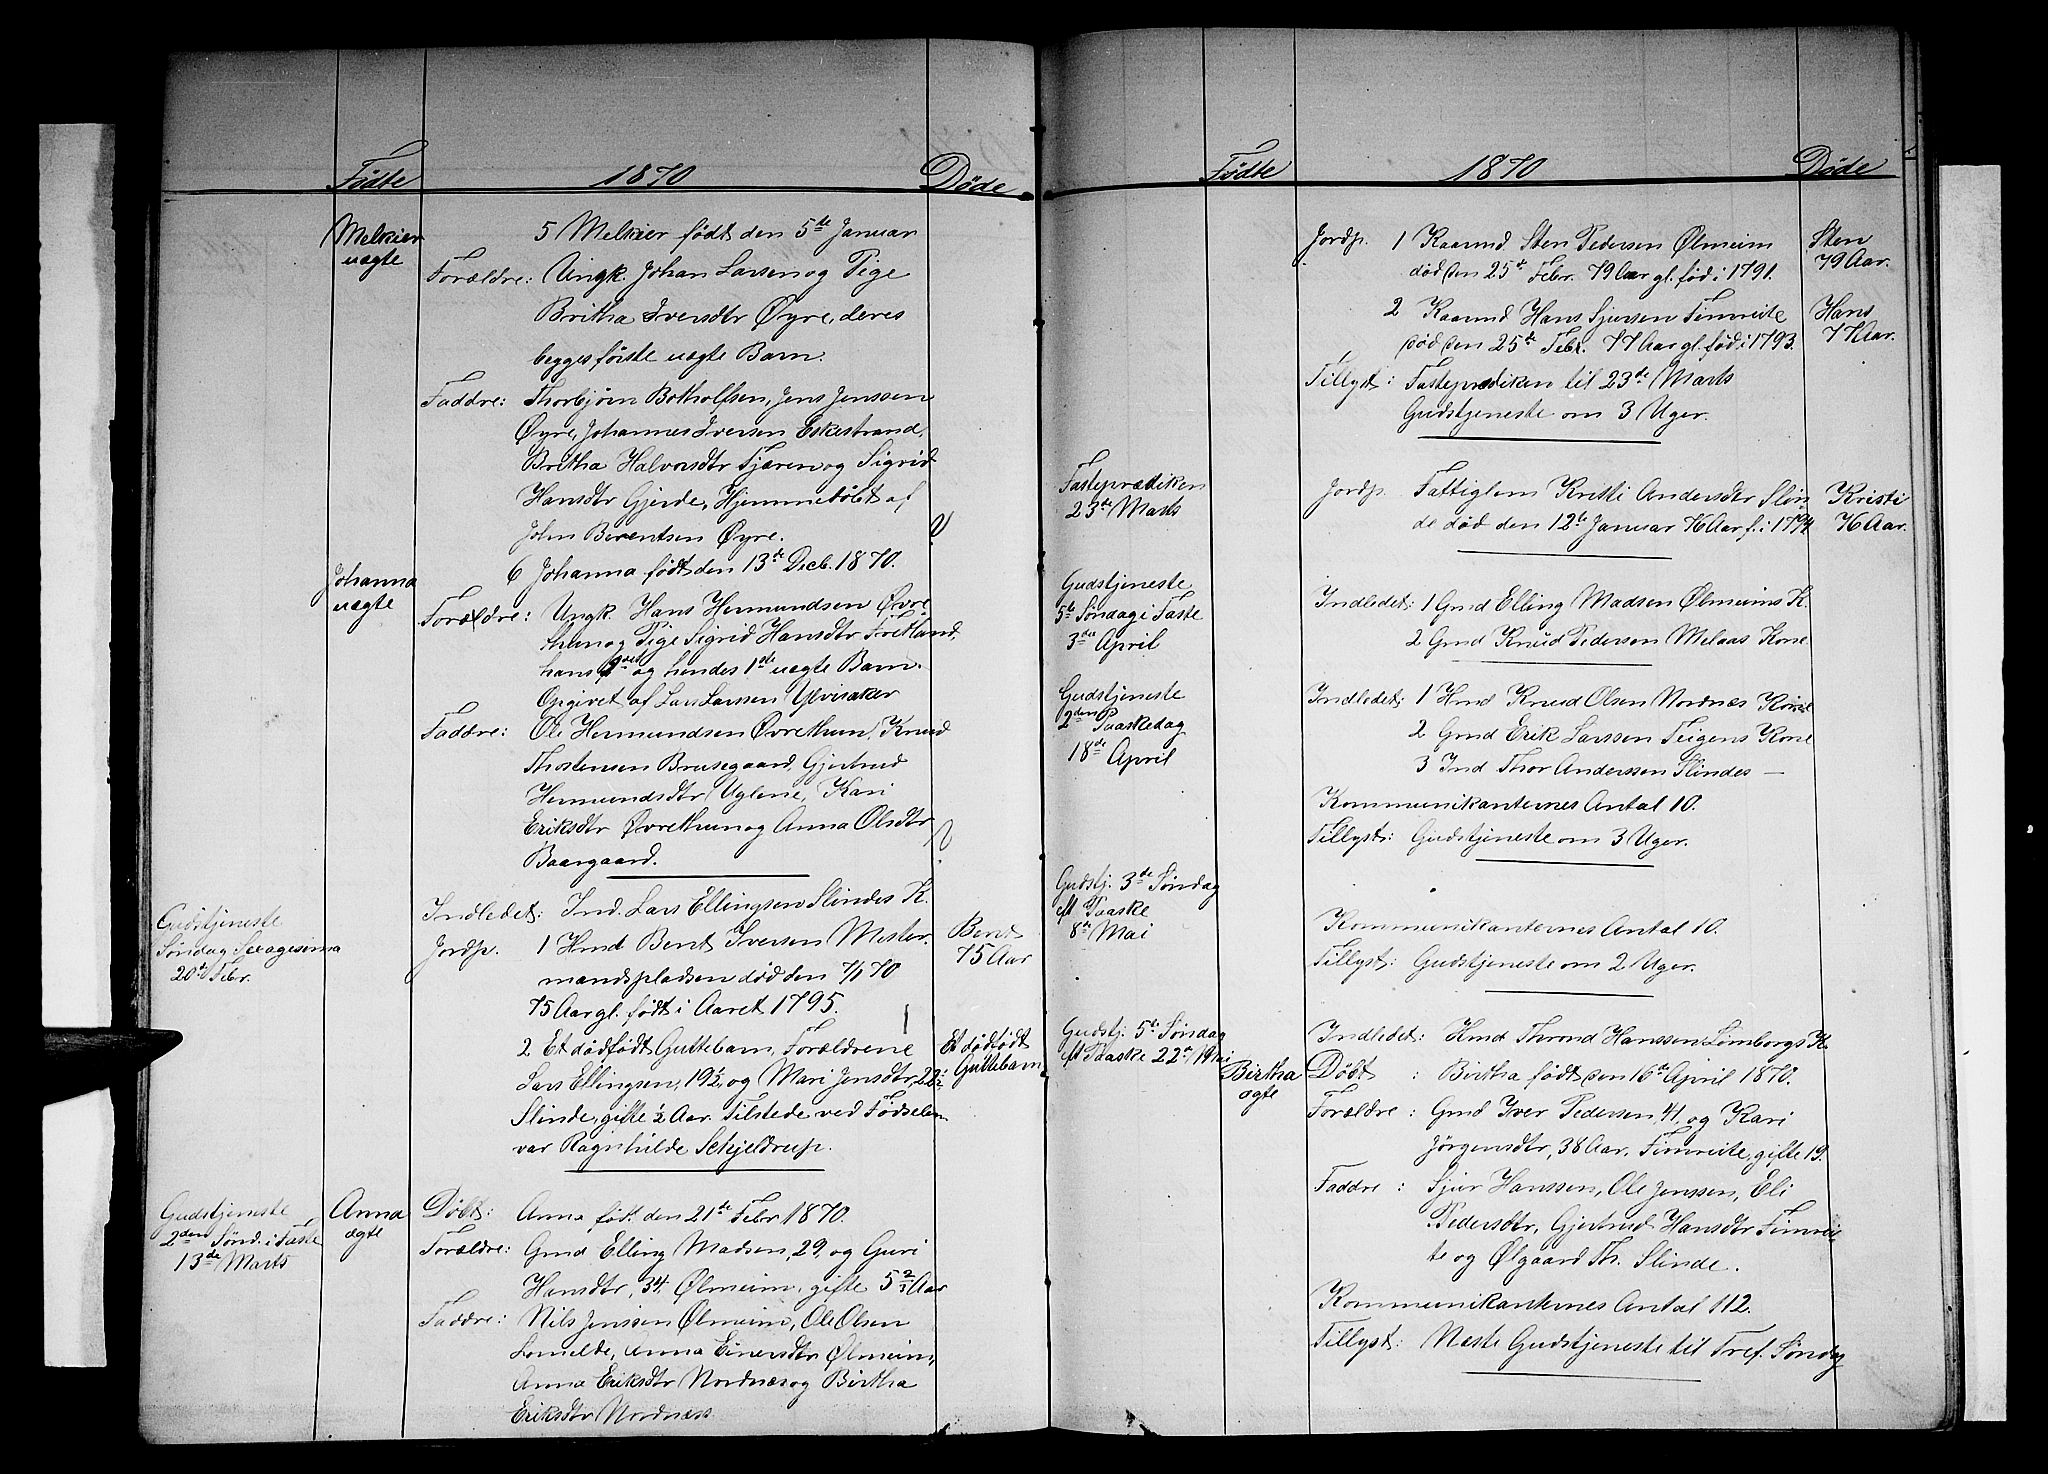 Fødte 1870 Døde
Melkier
uægte
5 Melkier født den 5te Januar
Forældre: Ungk. Johan Larsen og Pige
Britha Iversdtr Øyre, deres
begges første uægte Barn.
Faddre: Thorbjørn Botholfsen, Jens Jenssen
Øyre, Johannes Iversen Eskestrand,
Britha Halvorsdtr Fjæren og Sigrid
Hansdtr Gjerde, Hjemmedøbt af
John Berentsen Øyre.
Johanna
uægte
6 Johanna født den 13de Decb. 1870.
Forældre: Ungk. Hans Hermundsen Øvre
thun og Pige Sigrid Hansdtr Fretland,
hans og hendes 1ste uægte Barn.
Opgivet af Lars Larssen Ylvisaker
Faddre: Ole Hermundsen Øvrethun, Knud
Thorstensen Brusegaard, Gjertrud
Hermundsdtr Uglene, Kari
Eriksdtr Øvrethun og Anna Olsdtr
Baargaard.
Gudstjeneste
Søndag Sexagesima
20de Febr.
Indledet: Ind. Lars Ellingsen Slindes K.
Jordp. 1 Hmd Bent Iversen Mester
mandspladsen død den 7/1 70
75 Aar gl. født i Aaret 1795.
Bent
75 Aar
2 Et dødfødt Guttebarn, Forældrene
Lars Ellingsen, 19½, og Mari Jensdtr, 22½
Slinde, gifte ½ Aar. Tilstede ved Fødselen
var Ragnhilde Schjeldrup.
Et dødfødt
Guttebarn
Gudstjeneste
2den Sønd. i Faste
13de Marts
Anna
ægte
Døbt: Anna fød. den 21de Febr 1870.
Forældre: Gmd Elling Madsen, 29, og Guri
Hansdtr, 34, Ølmeim, gifte 5 Aar
Faddre: Nils Jenssen Ølmeim, Ole Olsen
Lomelde, Anna Einersdtr Ølmeim,
Anna Eriksdtr Nordnæs og Birtha
Eriksdtr Nordnæss.
Fødte 1870 Døde
Jordp. 1 Kaarmd. Sten Pedersen Ølmeim
død den 25de Febr. 79 Aar gl. fød i 1791.
Sten
79 Aar.
2 Kaarmd Hans Sjursen Fimreite
død den 25de Febr. 77 Aar gl. fød i 1793.
Hans
77 Aar.
Tillyst: Fasteprædiken til 23de Marts
Gudstjeneste om 3 Uger.
Fasteprædiken
23de Marts
Jordp. Fattiglem Kristi Andersdtr Slin
de død den 12te Januar 76 Aar f. i 1794
Kristi
76 Aar.
Gudstjeneste
5te Søndag i Faste
3die April
Indledet: 1 Gmd Elling Madsen Ølmeims K.
2 Gmd Knud Pedersen Melaas Kone
Gudstjeneste
2den Paaskedag
18de April
Indledet: 1 Hmd Knud Olsen Nordnes Kone
2 Gmd Erik Larssen Teigens Kone
3 Ind Thor Anderssen Slindes —
Kommunikanternes Antal 10.
Tillyst: Gudstjeneste om 3 Uger.
Gudstj. 3de Søndag
eft Paaske
8de Mai
Kommunikanternes Antal 10.
Tillyst: Gudstjeneste om 2 Uger.
Gudstj. 5te Søndag
eft Paaske 22de Mai
Indledet: Hmd Thrond Hanssen Lomborgs K.
Birtha
ægte
Døbt : Birtha født den 16de April 1870.
Forældre : Gmd Iver Pedersen, 41, og Kari
Jørgensdtr, 38 Aar, Fimreite, gifte 19.
Faddre : Sjur Hanssen, Ole Jenssen, Eli
Pedersdtr, Gjertrud Hansdtr Fimrei-
te og Ølgaard Th. Slinde.
Kommunikanternes Antal 112.
Tillyst: Næste Gudstjeneste til Tref. Søndag